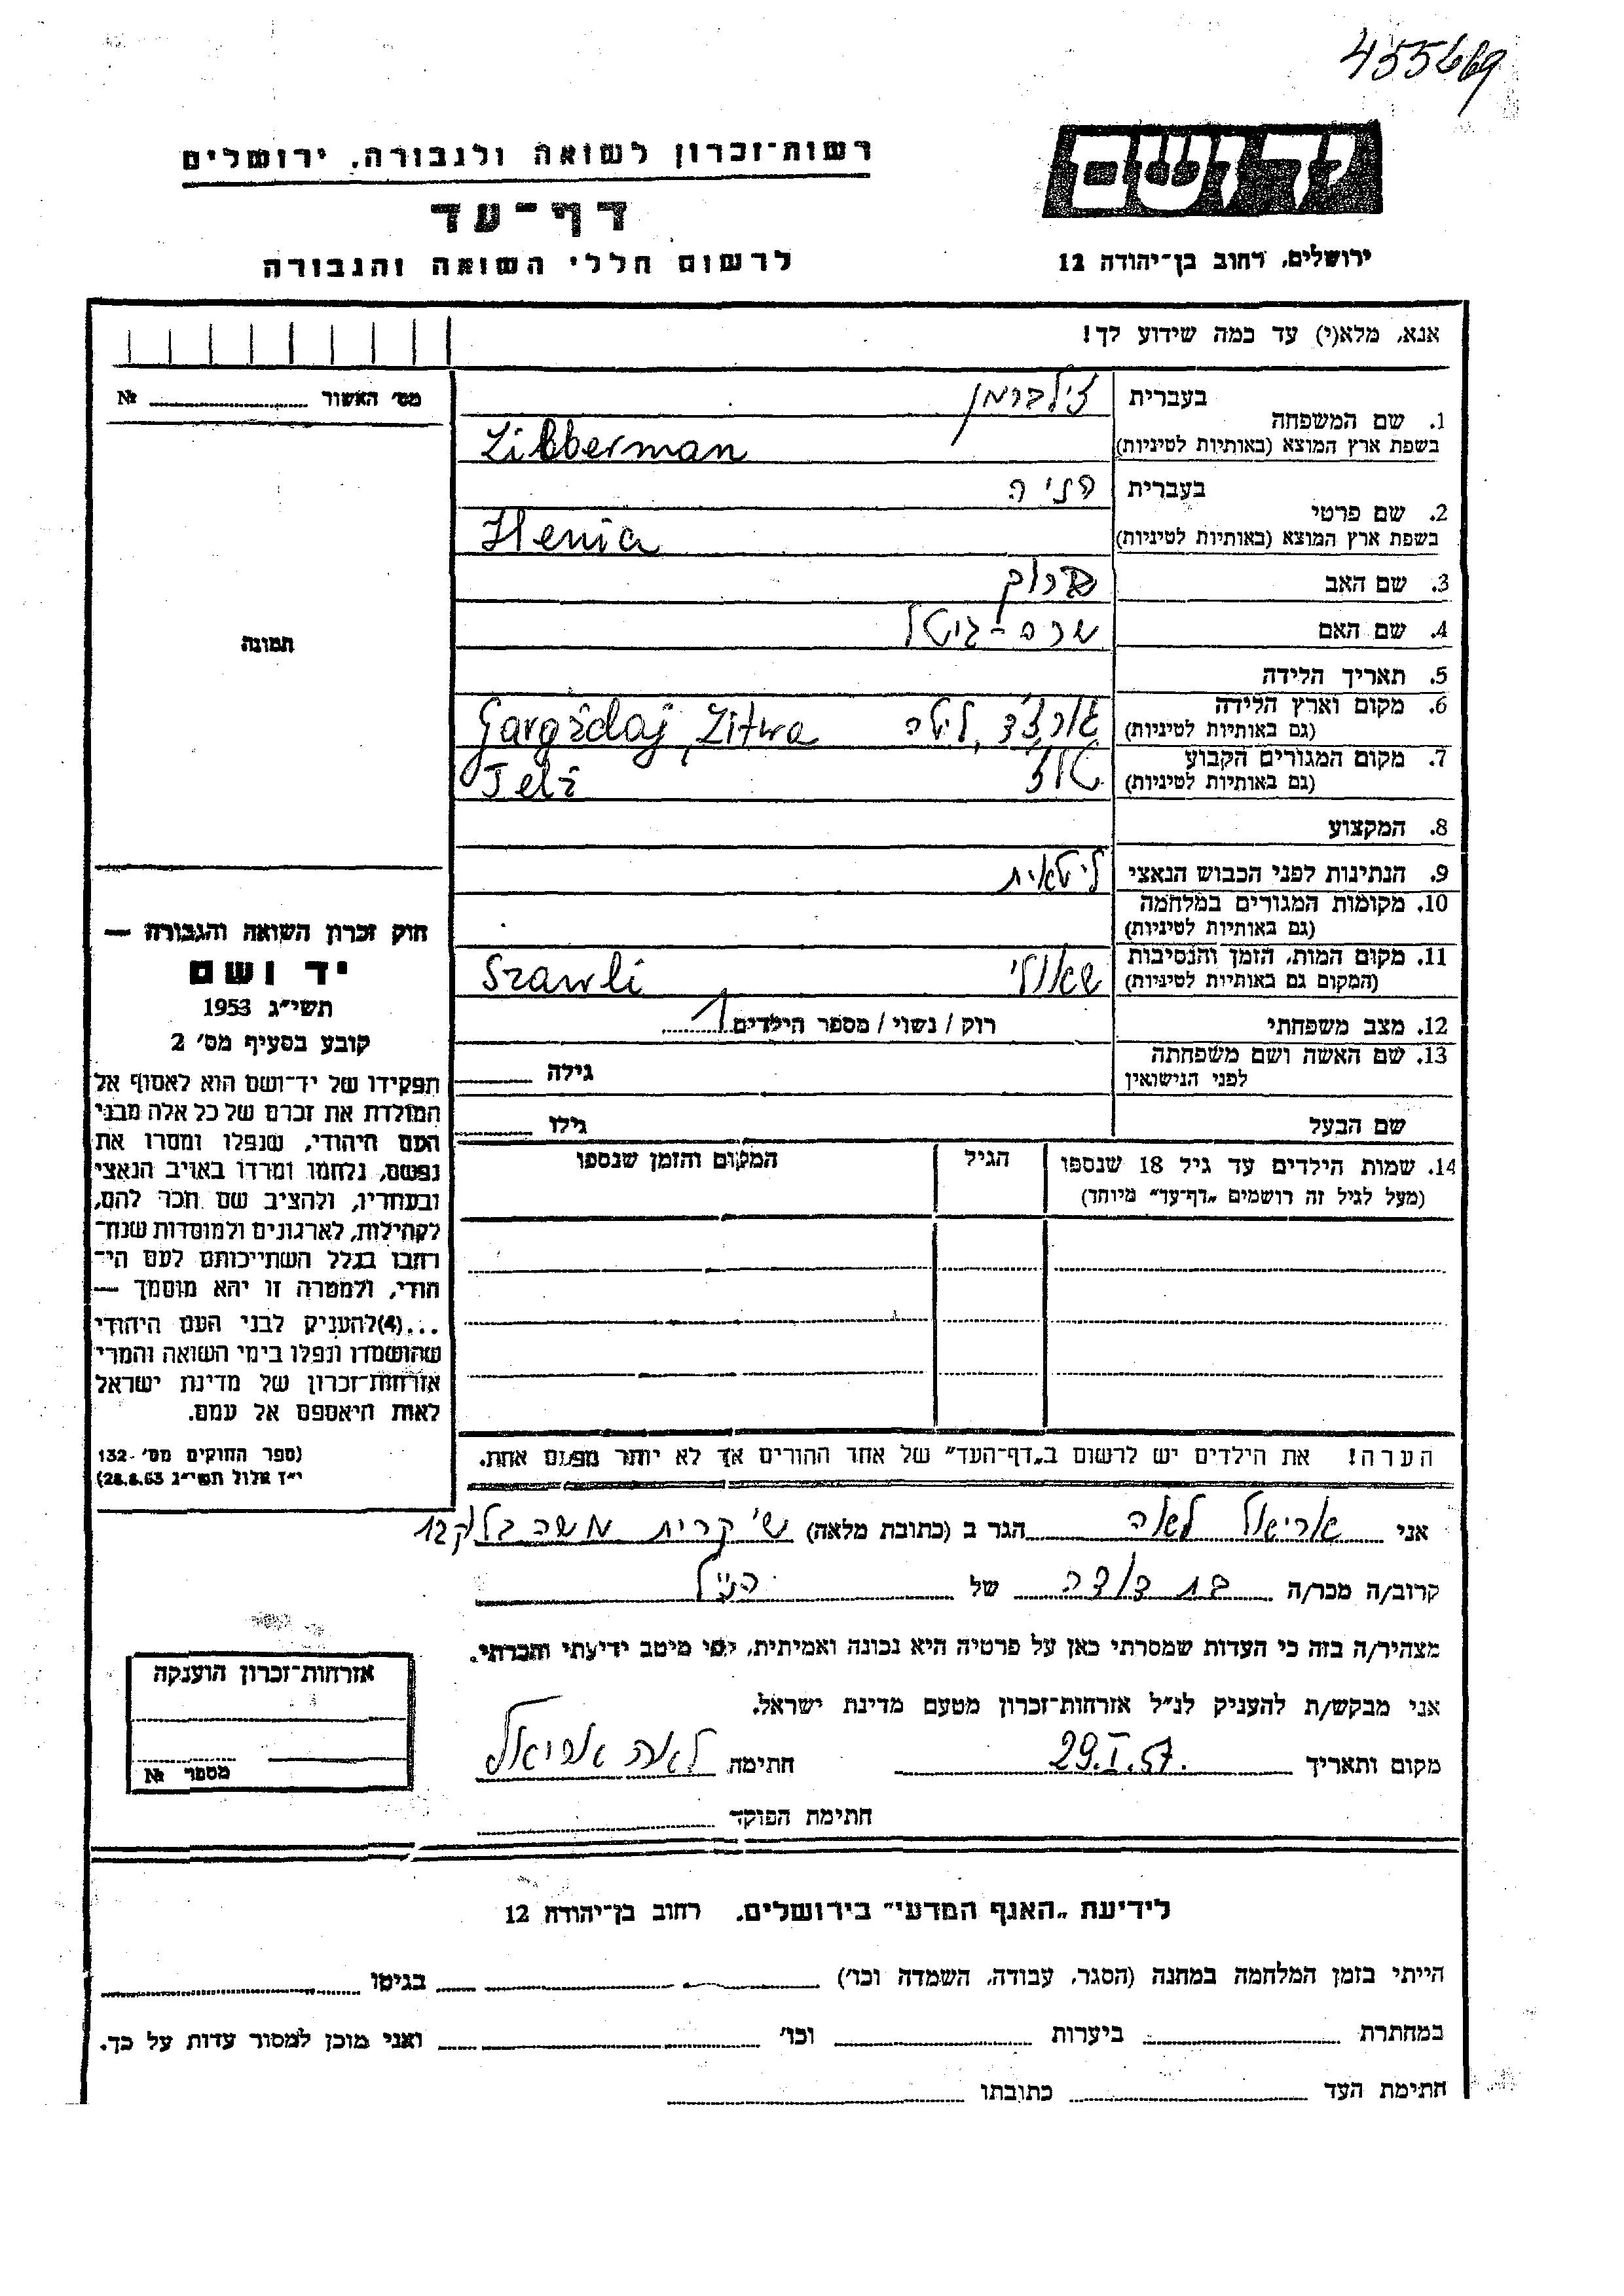 455669
ידושם
רשות־זכרון לשואה ולגבורה, ירושלים
דף־עד
לרשום חללי השואה והגבורה
ירושלים, רחוב בן־יהודה 12
אנא, מלא(י) עד כמה שידוע לך!
מס׳ האשור № 
תמונה
1. שם המשפחה
בעברית זילברמן
בשפת ארץ המוצא (באותיות לטיניות) Zilberman
2. שם פרטי
בעברית הניה
בשפת ארץ המוצא (באותיות לטיניות) Henia
3. שם האב ברוך
4. שם האם שרה-גיטל
5. תאריך הלידה
6. מקום וארץ הלידה
(גם באותיות לטיניות) ליטא Gargždaj, Litwa
7. מקום המגורים הקבוע
(גם באותיות לטיניות) טלז Telž
8. המקצוע
9. הנתינות לפני הכבוש הנאצי ליטאית
10. מקומות המגורים במלחמה
(גם באותיות לטיניות)
11. מקום המות, הזמן והנסיבות
(המקום גם באותיות לטיניות) שאולי Szawli
12. מצב משפחתי רוק / נשוי / מספר הילדים 1
13. שם האשה ושם משפחתה
לפני הנישואין גילה
שם הבעל גילו
14. שמות הילדים עד גיל 18 שנספו
(מעל לגיל זה רושמים „דף־עד״ מיוחד)
הגיל
המקום והזמן שנספו
חוק זכרון השואה והגבורה —
יד ושם
תשי״ג 1953
קובע בסעיף מס׳ 2
תפקידו של יד־ושם הוא לאסוף אל
המולדת את זכרם של כל אלה מבני
העם היהודי, שנפלו ומסרו את
נפשם, נלחמו ומרדו באויב הנאצי
ובעוזריו, ולהציב שם וזכר להם,
לקהילות, לארגונים ולמוסדות שנח־
רבו בגלל השתייכותם לעם הי־
הודי, ולמטרה זו יהא מוסמך —
...(4)להעניק לבני העם היהודי
שהושמדו ונפלו בימי השואה והמרי
אזרחות־זכרון של מדינת ישראל
לאות היאספם אל עמם.
(ספר החוקים מס׳ 132
י״ז אלול תשי״ג 28.8.53)
הערה! את הילדים יש לרשום ב„דף־העד״ של אחד ההורים אך לא יותר מפעם אחת.
אני אריאל לאה הגר ב (כתובת מלאה) ש׳ קרית משה בלוק 12
קרוב/ה מכר/ה בת דודה של הנ״ל
מצהיר/ה בזה כי העדות שמסרתי כאן על פרטיה היא נכונה ואמיתית, לפי מיטב ידיעתי והכרתי.
אני מבקש/ת להעניק לנ״ל אזרחות־זכרון מטעם מדינת ישראל.
מקום ותאריך 29.I.57. חתימה לאה אריאל
חתימת הפוקד
אזרחות־זכרון הוענקה
מספר №
לידיעת „האגף המדעי״ בירושלים, רחוב בן־יהודה 12
הייתי בזמן המלחמה במחנה (הסגר, עבודה, השמדה וכו׳) בגיטו
במחתרת ביערות וכו׳ ואני מוכן למסור עדות על כך.
חתימת העד כתובתו